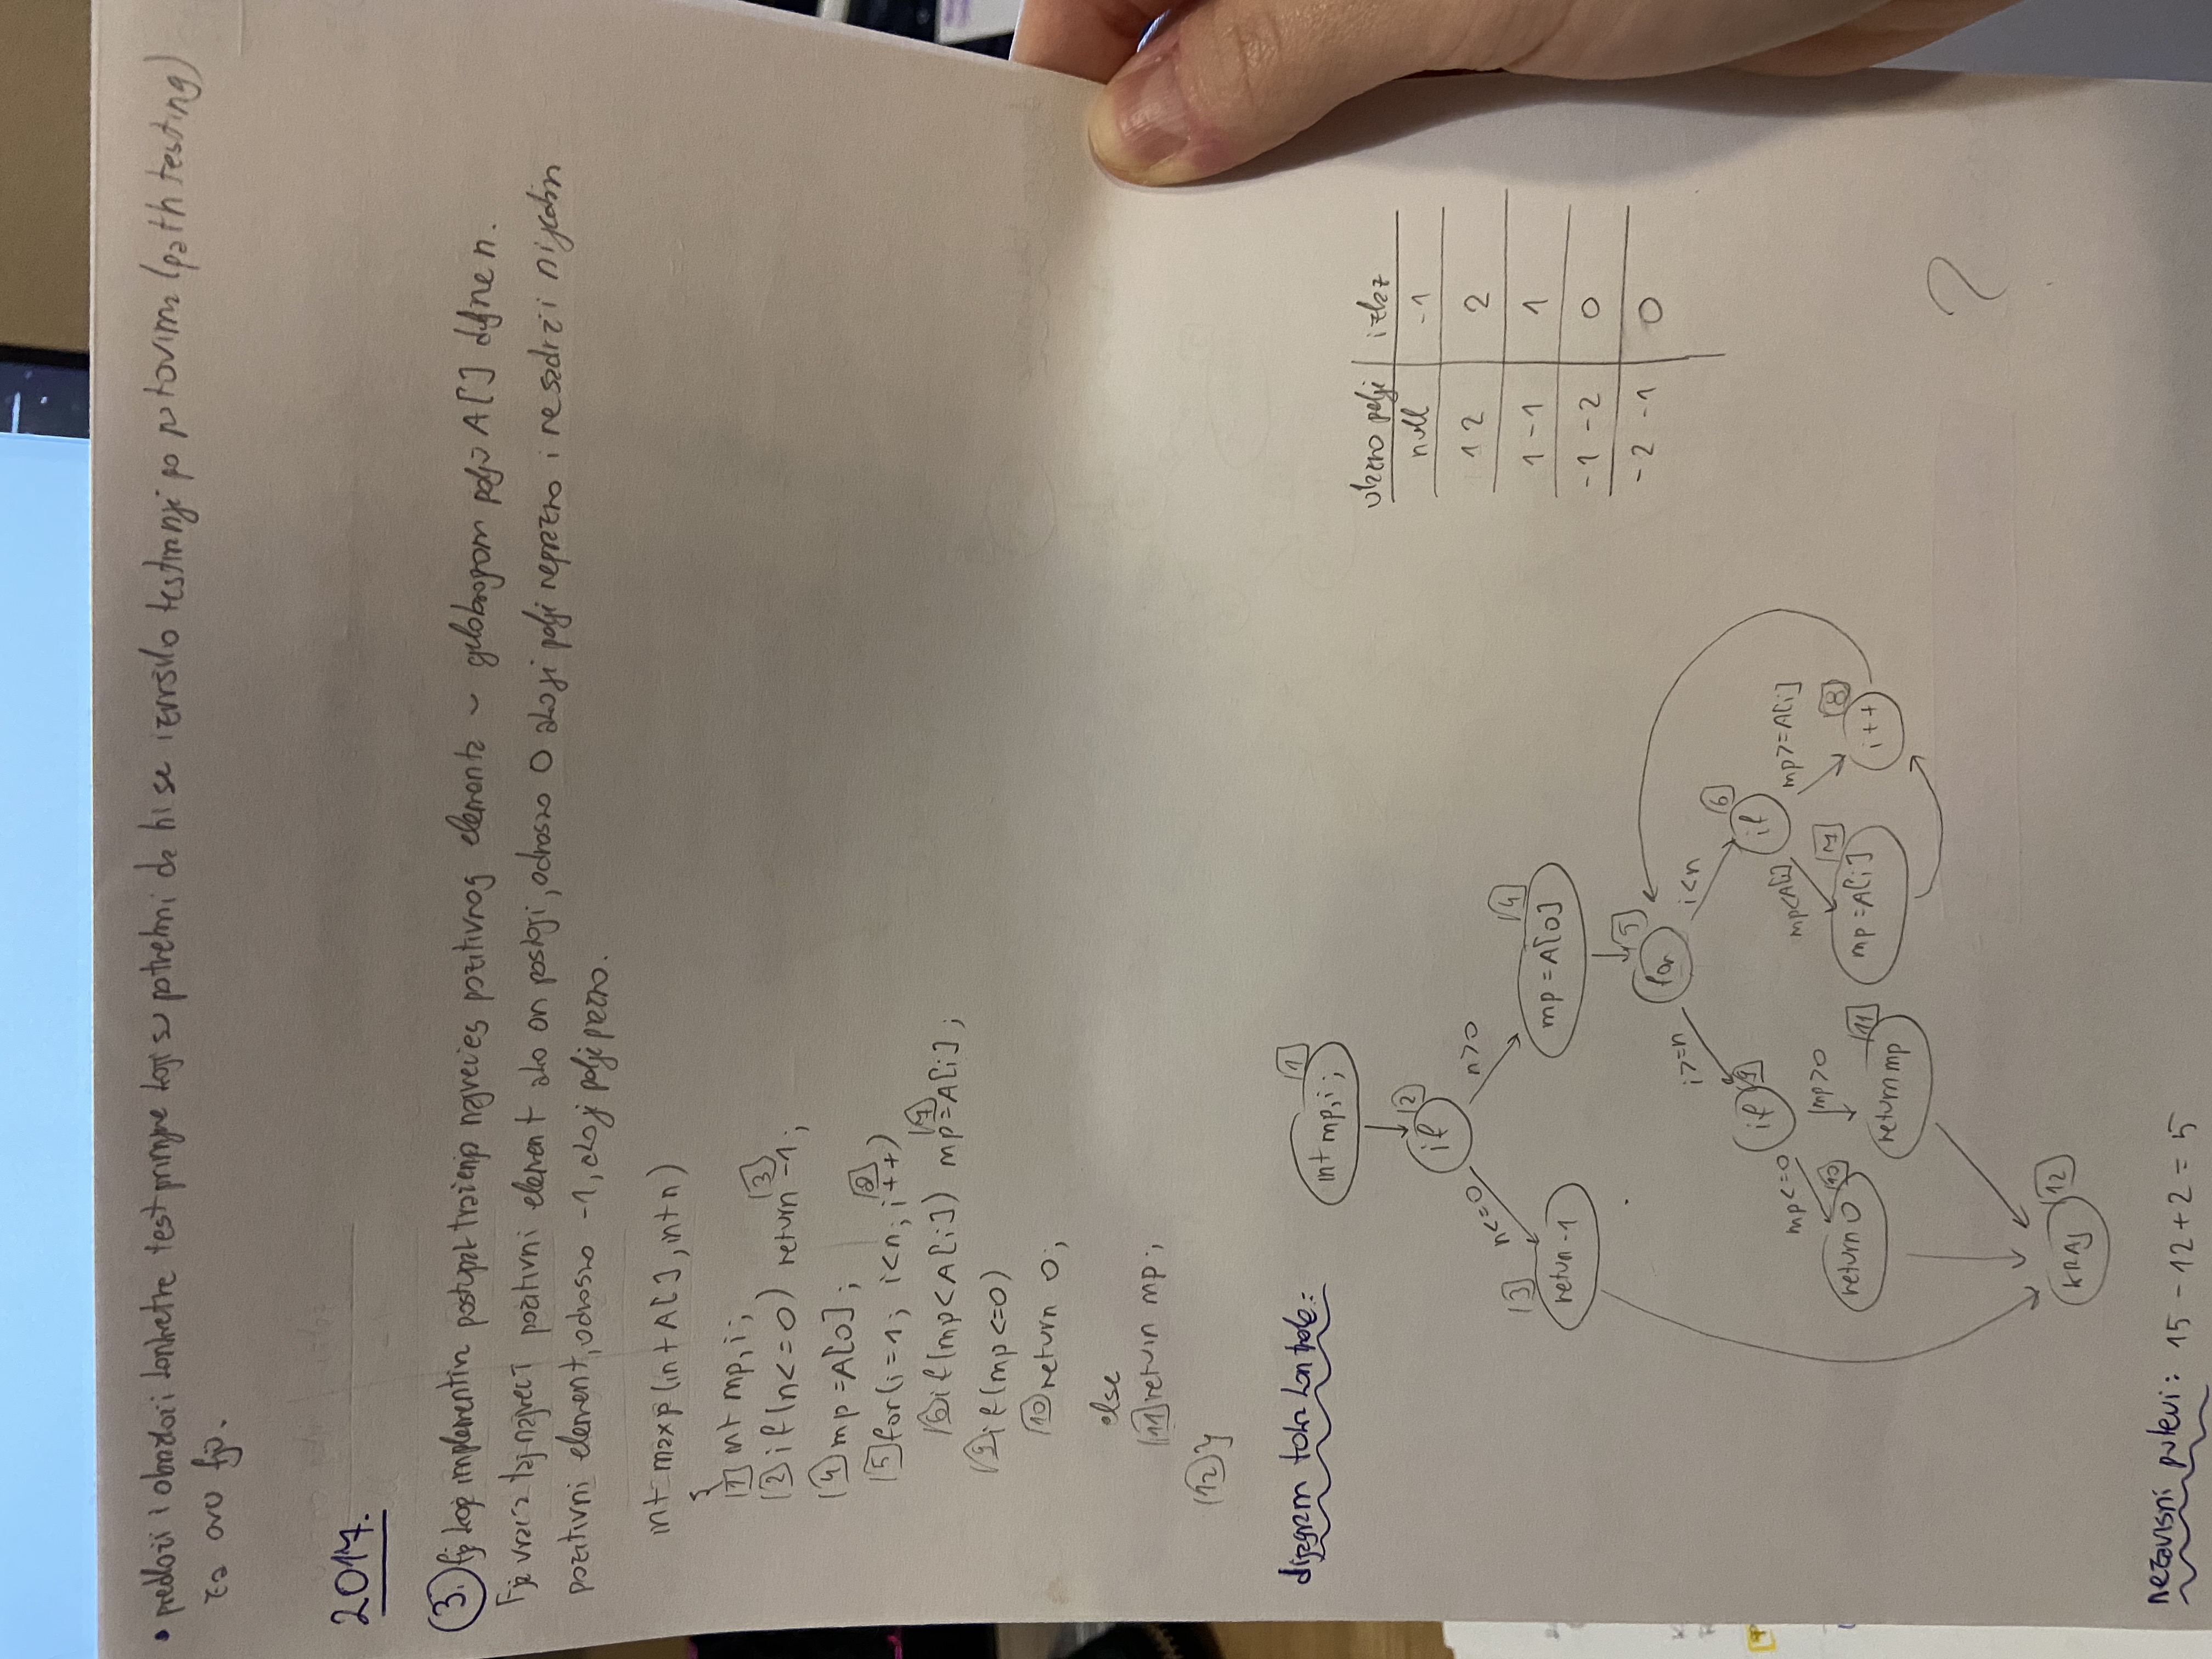 • predloži i obrazloži konkretne test primjere koji su potrebni da bi se izvršilo testiranje po putovima (path testing)
za ovu fju.
2017.
3. fja koja implementira postupak traženja najvećeg pozitivnog elementa u cjelobrojnom polju A[] duljine n.
Fja vraća taj najveći pozitivni element ako on postoji, odnosno 0 ako je polje neprazno i ne sadrži nijedan
pozitivni element, odnosno -1, ako je polje prazno.
int maxp(int A[], int n)
{
1 int mp, i;
2 if(n<=0) return 3 -1;
4 mp=A[0];
5 for(i=1; i<n; 8 i++)
6 if(mp<A[i]) 7 mp=A[i];
9 if(mp<=0)
10 return 0;
else
11 return mp;
12 }
dijagram toka kontrole:
1
int mp, i;
2
if
n<=0 n>0
3 4
return -1 mp=A[0]
5
for
i>=n i<n
6
if 9 if
mp<=0 mp>0 mp<A[i] mp>=A[i]
return 0 10 11 7 8
return mp mp=A[i] i++
KRAJ 12
ulazno polje izlaz
null -1
1 2 2
1 -1 1
-1 -2 0
-2 -1 0
?
nezavisni putevi: 15-12+2=5